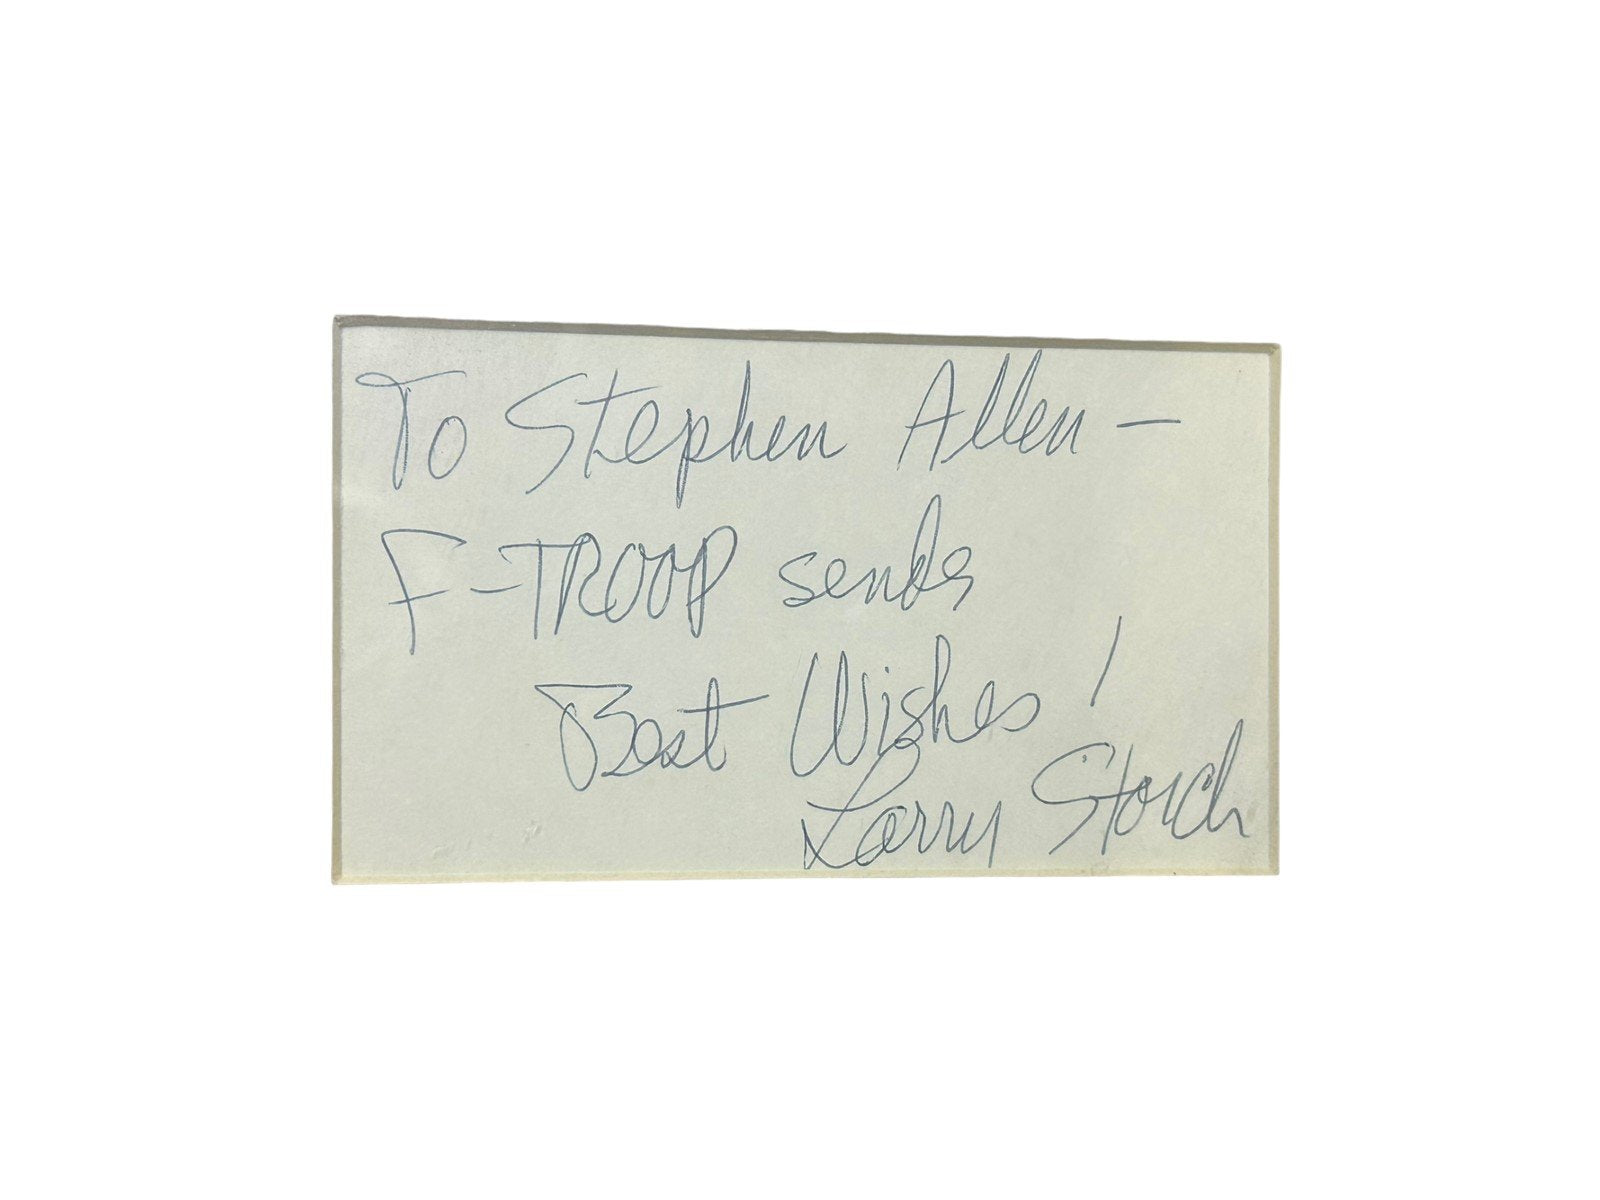 To Stephen Allen –
F-TROOP sends
Best Wishes!
Larry Storch